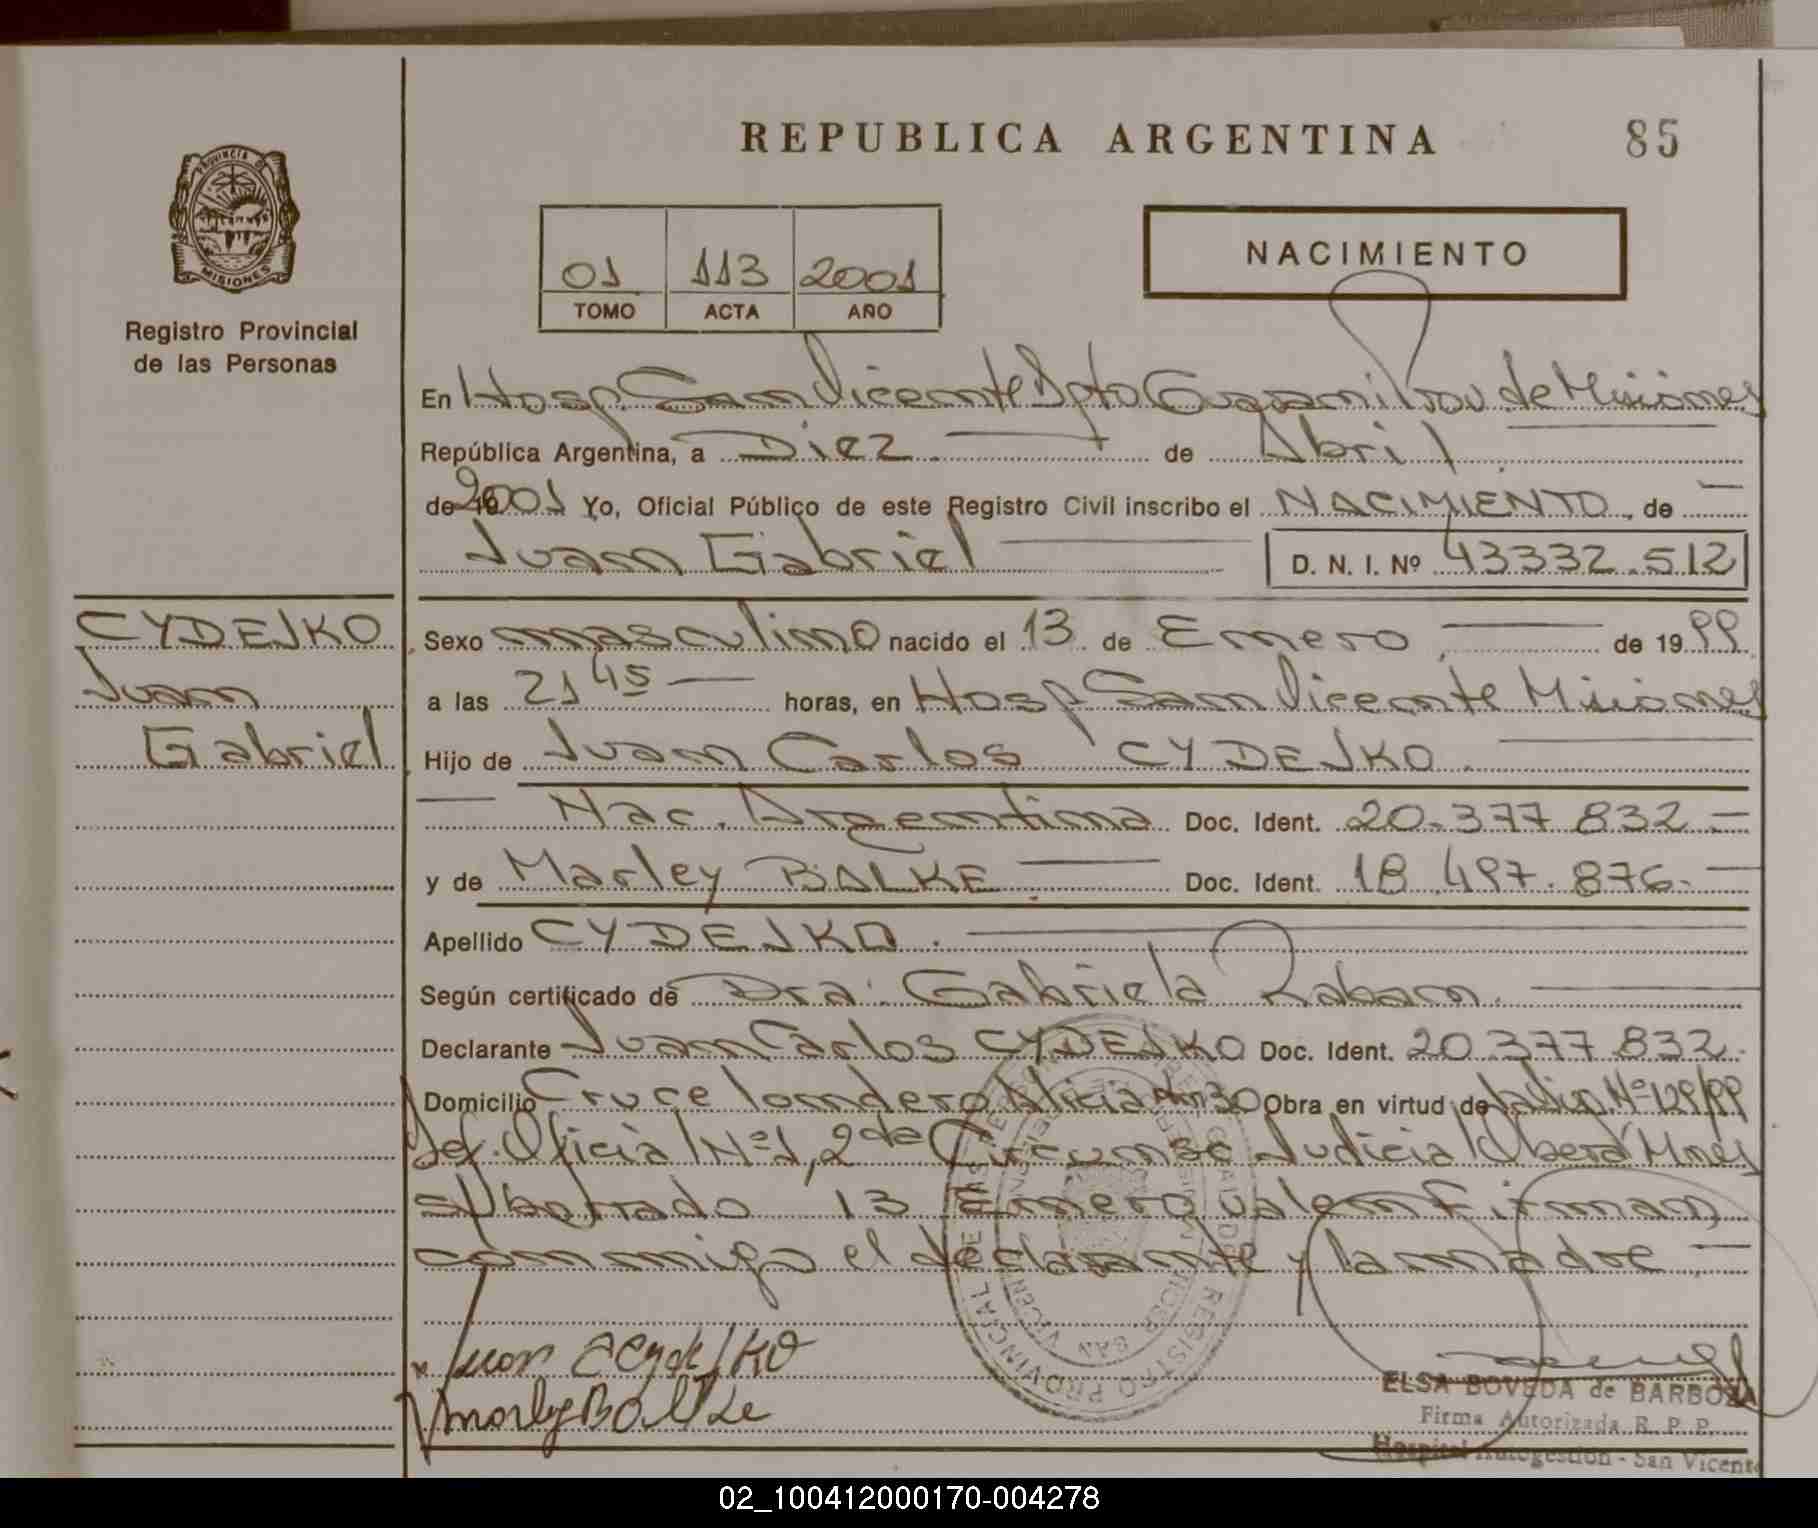 REPUBLICA ARGENTINA
85
PROVINCIA DE
MISIONES
Registro Provincial
de las Personas
01 113 2001
TOMO ACTA AÑO
NACIMIENTO
En Hosp San Vicente Dpto Guaraní Prov de Misiones
República Argentina, a Diez de Abril
de 2001 Yo, Oficial Público de este Registro Civil inscribo el NACIMIENTO, de
Juan Gabriel
D. N. I. Nº 43332.512
CYDEJKO
Juan
Gabriel
Sexo masculino nacido el 13 de Enero de 1999
a las 21 45 horas, en Hosp San Vicente Misiones
Hijo de Juan Carlos CYDEJKO
Nac. Argentina Doc. Ident. 20.377 832
y de Marley BALKE Doc. Ident. 18.497.876.
Apellido CYDEJKO.
Según certificado de Dra. Gabriela Rabam.
Declarante Juan Carlos CYDEJKO Doc. Ident. 20.377 832.
Domicilio Cruce londero Alicia Km 30 Obra en virtud de Nº 129/99
Def. Oficial Nº 1, 2da Circunsc Judicial Oberá Mnes
s/borrado 13 Enero valen Firman
conmigo el declarante y la madre.
Juan C Cydejko
Marley Balke
REGISTRO PROVINCIAL DE LAS PERSONAS
ELSA BOVEDA de BARBOZA
Firma Autorizada R. P. P.
Hospital Autogestión - San Vicente
02_100412000170-004278